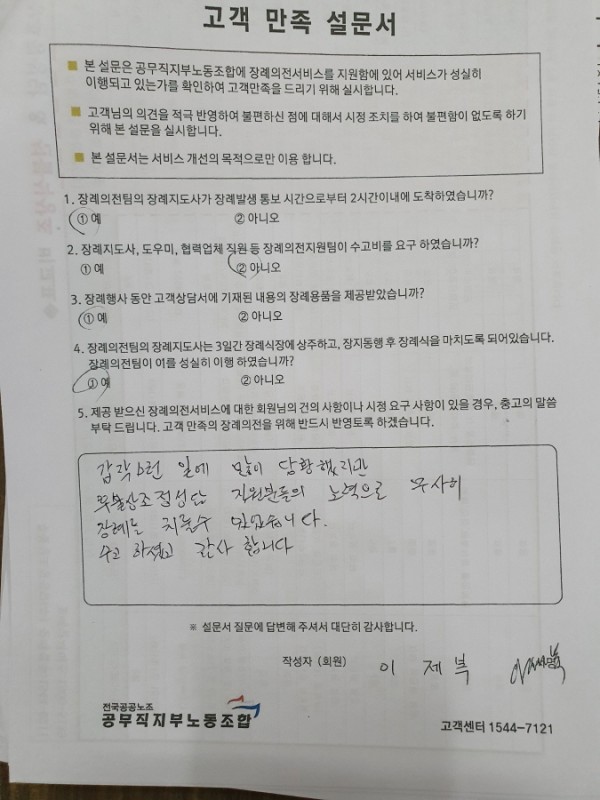 고객 만족 설문서
■ 본 설문은 공무직지부노동조합에 장례의전서비스를 지원함에 있어 서비스가 성실히
이행되고 있는가를 확인하여 고객만족을 드리기 위해 실시합니다.
■ 고객님의 의견을 적극 반영하여 불편하신 점에 대해서 시정 조치를 하여 불편함이 없도록 하기
위해 본 설문을 실시합니다.
■ 본 설문서는 서비스 개선의 목적으로만 이용 합니다.
1. 장례의전팀의 장례지도사가 장례발생 통보 시간으로부터 2시간이내에 도착하였습니까?
① 예 ② 아니오
2. 장례지도사, 도우미, 협력업체 직원 등 장례의전지원팀이 수고비를 요구 하였습니까?
① 예 ② 아니오
3. 장례행사 동안 고객상담서에 기재된 내용의 장례용품을 제공받았습니까?
① 예 ② 아니오
4. 장례의전팀의 장례지도사는 3일간 장례식장에 상주하고, 장지동행 후 장례식을 마치도록 되어있습니다.
장례의전팀이 이를 성실히 이행 하였습니까?
① 예 ② 아니오
5. 제공 받으신 장례의전서비스에 대한 회원님의 건의 사항이나 시정 요구 사항이 있을 경우, 충고의 말씀
부탁 드립니다. 고객 만족의 장례의전을 위해 반드시 반영토록 하겠습니다.
갑작스런 일에 많이 당황했지만
직원분들의 노력으로 무사히
장례를 치룰수 있었습니다.
수고 하셨고 감사 합니다
※ 설문서 질문에 답변해 주셔서 대단히 감사합니다.
작성자 (회원) 이 제
전국공공노조
공무직지부노동조합
고객센터 1544-7121